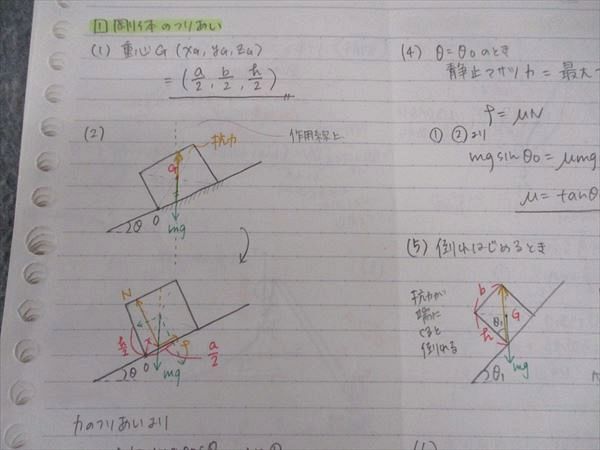 1 剛体のつりあい
(1) 重心G (xG, yG, zG)
= (a/2, b/2, h/2)
(2)
抗力
作用線上
G
θ
O
mg
N
h/2
x
f
a/2
θ
O
mg
力のつりあいより
(4) θ=θ0のとき
静止マサツ力=最大
f=μN
① ②より
mg sinθ0 = μmg
μ=tanθ
(5) 倒れはじめるとき
抗力が
端に
くると
倒れる
b
G
θ1
h
mg
θ1